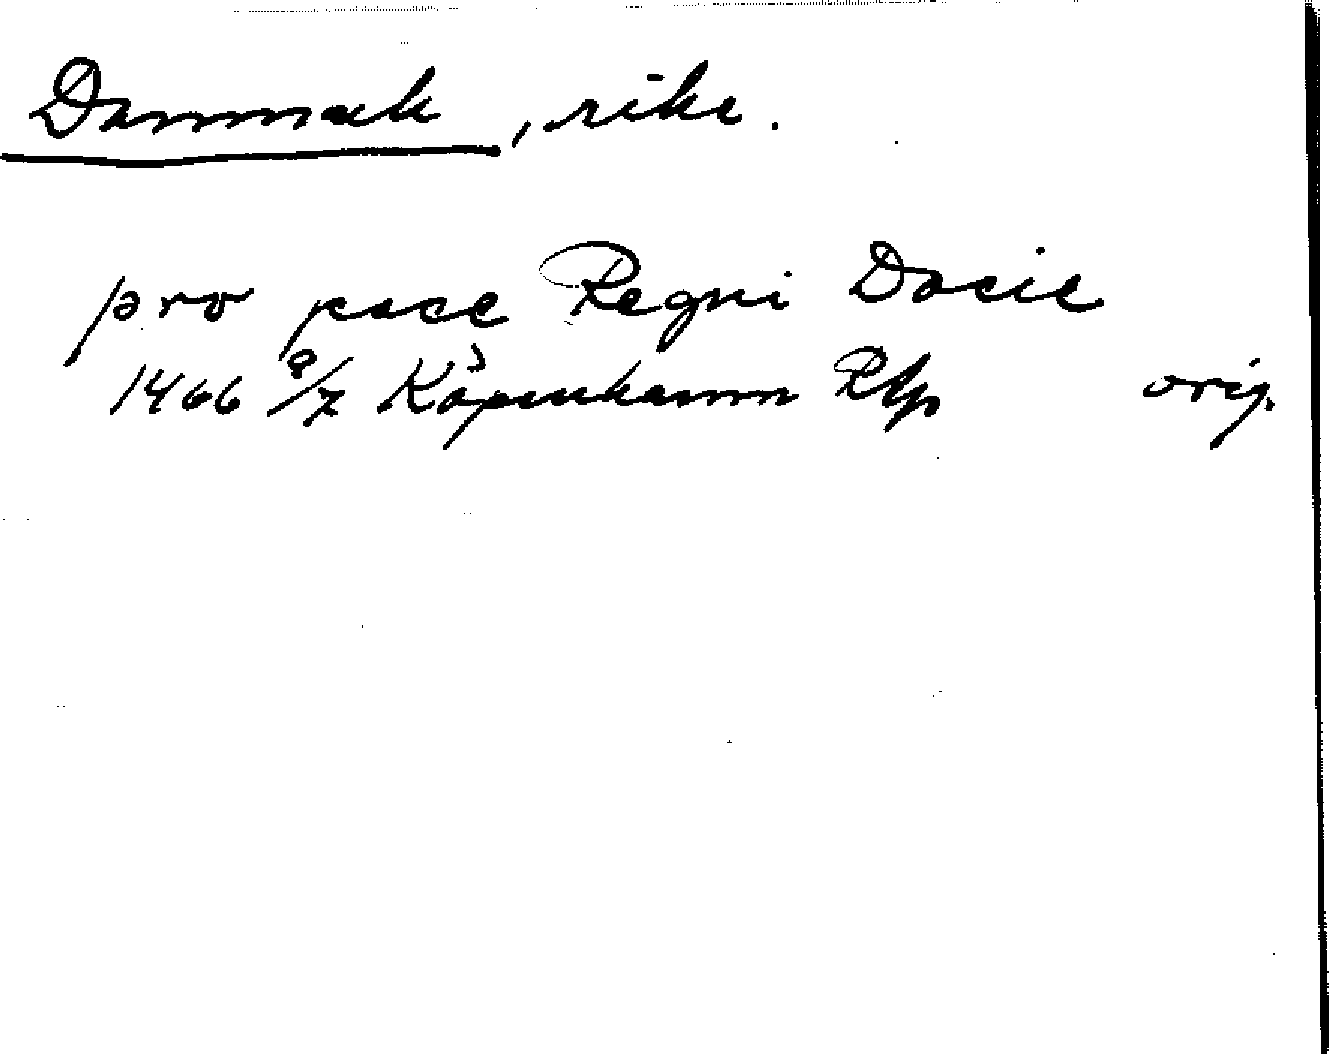 Danmark, rike.
pro pace Regni Dacie
1466 8/7 Köpenhamn Rap orig.